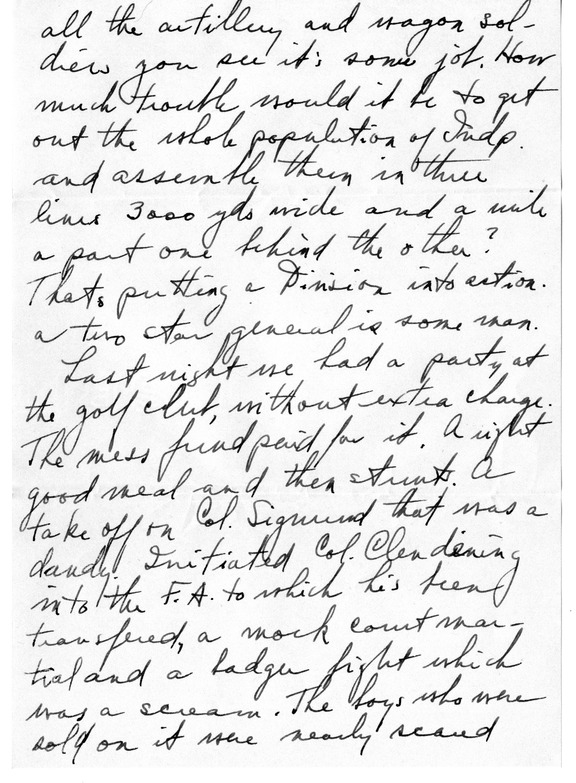 all the artillery and wagon sol-
diers you see it's some job. How
much trouble would it be to get
out the whole population of Indp.
and assemble them in three
lines 3000 yds wide and a mile
a part one behind the other?
Thats putting a Division into action.
a two star general is some man.
Last night we had a party at
the golf club, without extra charge.
The mess fund paid for it. A right
good meal and then stunts. A
take off on Col. Sigmund that was a
dandy. Initiated Col. Clendening
into the F.A. to which his been
transfered, a mock court mar-
tial and a badger fight which
was a scream. The boys who were
sold on it were nearly scared